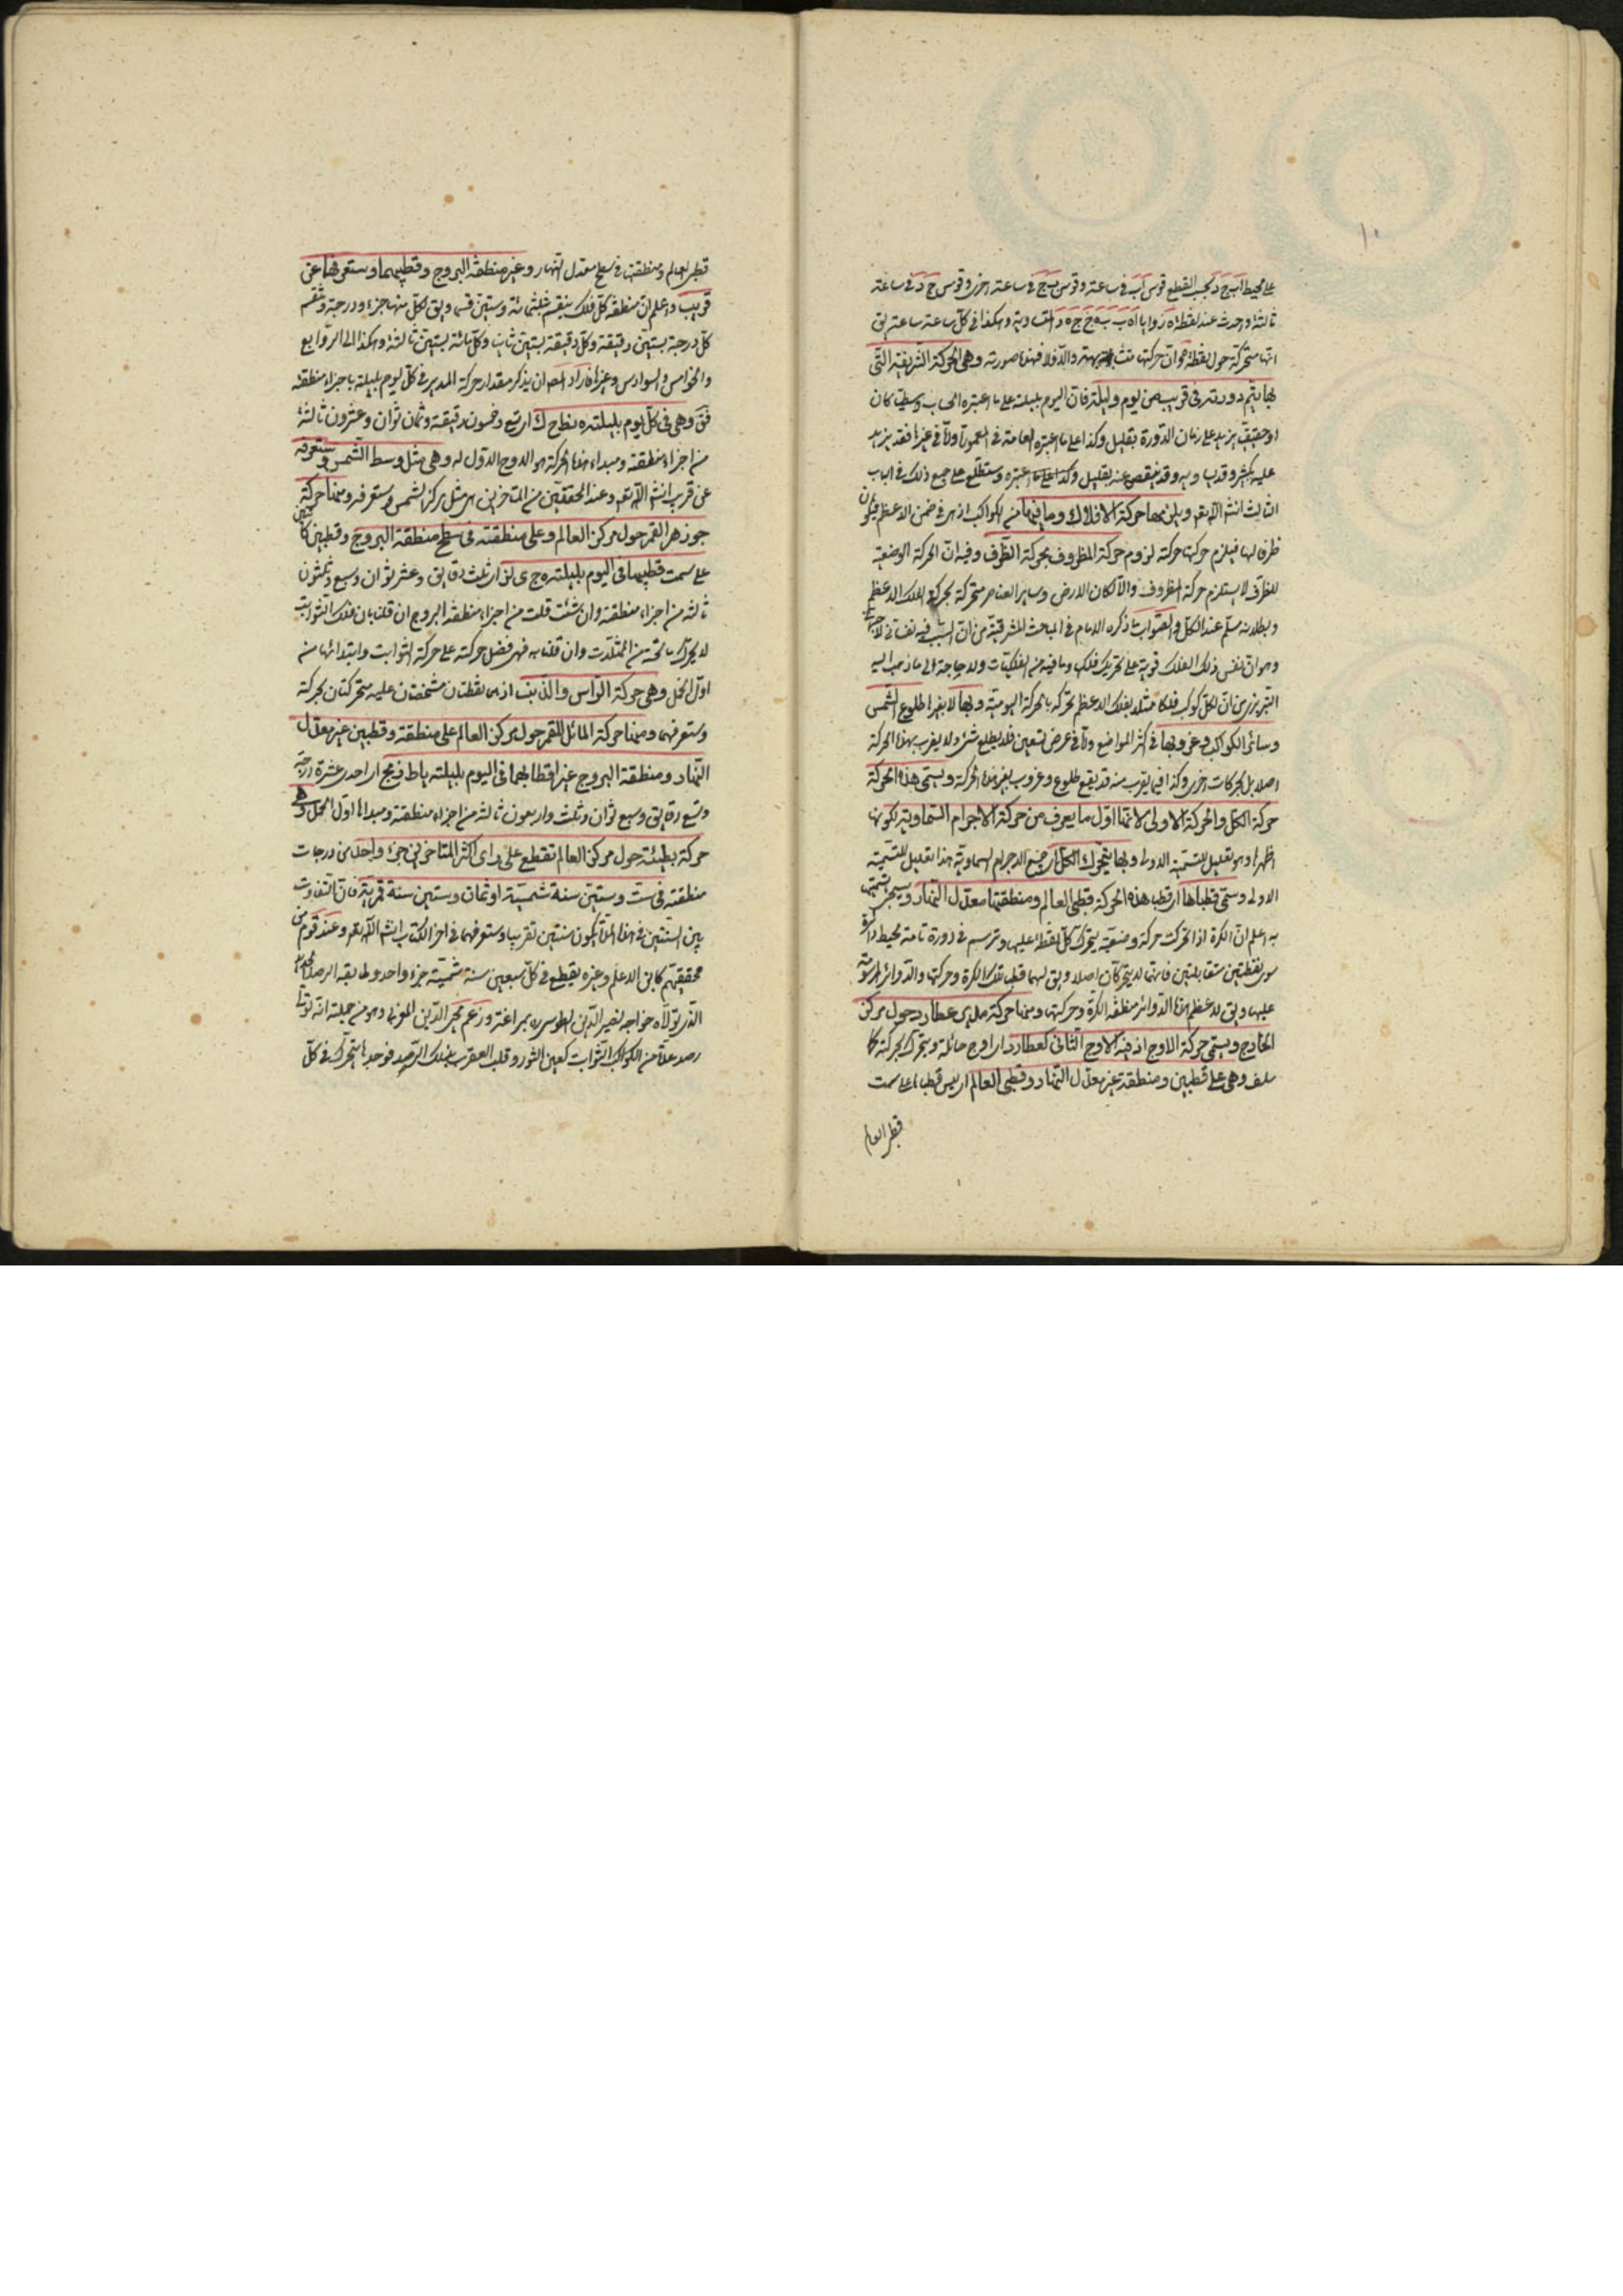 ١٠
على محيط ا ب ج د يجب القطع قوس ا ب في ساعة وقوس ب ج في ساعة اخرى وقوس ج د في ساعة
ثالثة وحدث عند نقطة ه زوايا ا ه ب ب ه ج ج ه د المتساوية وهكذا في كل ساعة ساعة يق
انها متحركة حول نقطة ه وان حركتها متشابهة والا فلا فهذا صورته وهي الحركة الشريفية التي
بها يتم دورته في قريب من يوم وليلة فان اليوم بليلته على ما اعتبره الحساب وسطيا كان
او حقيقيا يزيد على زمان الدورة بقليل وكذا على ما اعتبره العامة في المعمورة واما في غيرها فقد يزيد
عليه بكثير وقد يساويه وقد ينقص عنه بقليل وكذا على ما اعتبره وستطلع على جميع ذلك في الباب
الثالث انشاء الله تعالى ويلزمها حركة الافلاك وما فيها من الكواكب اذ هي في ضمن الاعظم فيكون
ظرفا لها فيلزم حركتها حركته لزوم حركة المظروف بحركة الظرف وفيه ان الحركة الوضعية
للظرف لا يستلزم حركة المظروف والا لكان الارض وسائر العناصر متحركة بحركة الفلك الاعظم
وبطلانه مسلم عند الكل والصواب ما ذكره الامام في المباحث المشرقية من ان السبب فيه
وهو ان نفس ذلك الفلك قوية على تحريك فلكه وما فيه من الفلكيات ولا حاجة الى ما ذهب اليه
التبريزي من ان لكل كوكب فلكا ممثلا بفلك الاعظم تحركه بالحركة اليومية وبها لا بغيرها طلوع الشمس
وسائر الكواكب وغروبها في اكثر المواضع واما في عرض تسعين فلا يطلع شئ ولا يغرب بهذه الحركة
اصلا بل بحركات اخرى وكذا فيما يقرب منه قد يقع طلوع وغروب بغير هذه الحركة ويسمى هذه الحركة
حركة الكل والحركة الاولى لانها اول ما يعرف من حركة الاجرام السماوية لكونها
اظهرها وهو تعليل للتسمية الاولى وبها يتحرك الكل اي جميع الاجرام السماوية هذا تعليل للتسمية
الاولى وسمى قطباها اي قطبا هذه الحركة قطبي العالم ومنطقتها معدل النهار وسيجئ تسميتها
به اعلم ان الكرة اذا تحركت حركة وضعية يتحرك كل نقطة عليها وترسم في دورة تامة محيط دائرة
سوى نقطتين متقابلتين فانهما لا يتحركان اصلا ويق لهما قطبا تلك الكرة وحركتها والدوائر المرسومة
عليها ويق لاعظم هذه الدوائر منطقة الكرة وحركتها ومنها حركة مدير عطارد حول مركز
الخارج ويسمى حركة الاوج اذ فيه الاوج الثاني كعطارد اي اوج حامله ويتحرك بحركته كما
سلف وهي على قطبين ومنطقة غير معدل النهار وقطبي العالم اي ليس قطباه على سمت
قطبي العالم
قطبي العالم ومنطقتها في سطح معدل النهار وغير منطقة البروج وقطبيهما وستعرفها عن
قريب واعلم ان منطقة كل فلك ينقسم بثلثمائة وستين قسما ويق لكل منها جزء ودرجة وينقسم
كل درجة بستين دقيقة وكل دقيقة بستين ثانية وكل ثانية بستين ثالثة وهكذا الى الروابع
والخوامس والسوادس وغيرها فاراد المص ان يذكر مقدار حركة المدير في كل يوم بليلته باجزاء منطقته
فق وهي في كل يوم بليلته ه نط ح ك اي تسع وخمسون دقيقة وثمان ثوان وعشرون ثالثة
من اجزاء منطقته ومبداء هذه الحركة هو الاوج الاول له وهي مثل وسط الشمس وستعرفه
عن قريب انشاء الله تعالى وعند المحققين من المتاخرين هي مثل مركز الشمس وستعرفه ومنها حركة
جوزهر القمر حول مركز العالم وعلى منطقته في سطح منطقة البروج وقطبين كائنين
على سمت قطبيها في اليوم بليلته ه ج ى لز اي ثلث دقايق وعشر ثوان وسبع وثلثون
ثالثة من اجزاء منطقته وان شئت قلت من اجزاء منطقة البروج ان قلنا بان فلك الثوابت
لا يحرك ما تحته من الممثلات وان قلنا به فهي فضل حركته على حركة الثوابت وابتدائها من
اول الحمل وهي حركة الراس والذنب اذ هما نقطتان مشخصتان عليه متحركتان بحركته
وستعرفهما ومنها حركة المائل للقمر حول مركز العالم على منطقة وقطبين غير معدل
النهار ومنطقة البروج غير اقطابهما في اليوم بليلته يا ط ز مج اي احدى عشرة درجة
وتسع دقايق وسبع ثوان وثلث واربعون ثالثة من اجزاء منطقته ومبداها اول الحمل وهي
حركة بطيئة حول مركز العالم تقطع على راى اكثر المتاخرين جزء واحد من درجات
منطقته في ست وستين سنة شمسية او ثمان وستين سنة قمرية فان التفاوت
بين السنتين في هذه المدة يكون سنتين تقريبا وستعرفهما في اخر الكتاب انشاء الله تعالى وعند قوم من
محققيهم كابن الاعلم وغيره يقطع في كل سبعين سنة شمسية جزء واحد وطابقه الرصد الجديد
الذي تولاه خواجه نصير الدين الطوسي ره بمراغة وزعم محيى الدين المغربي وهو من جملته انه تولى
رصد عدة من الكواكب الثوابت كعين الثور وقلب العقرب بذلك الرصد فوجدها يتحرك في كل